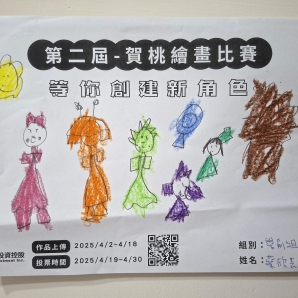 第二屆-賀桃繪畫比賽
等你創建新角色
投資控股
作品上傳 2025/4/2-4/18
投票時間 2025/4/19-4/30
組別:
姓名: